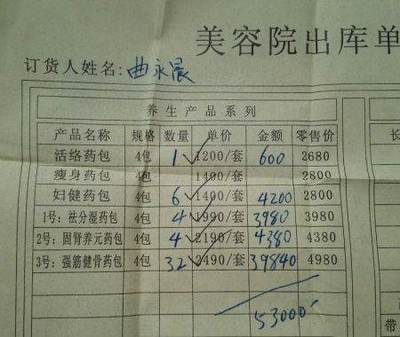 美容院出库单
订货人姓名:曲永晨
养生产品系列
产品名称 规格 数量 单价 金额 零售价
活络药包 4包 1 1200/套 600 2680
瘦身药包 4包 1400/套 2800
妇健药包 4包 6 1400/套 4200 2800
1号：祛分湿药包 4包 4 1990/套 3980 3980
2号：固肾养元药包 4包 4 2190/套 4380 4380
3号：强筋健骨药包 4包 32 2490/套 39840 4980
53000